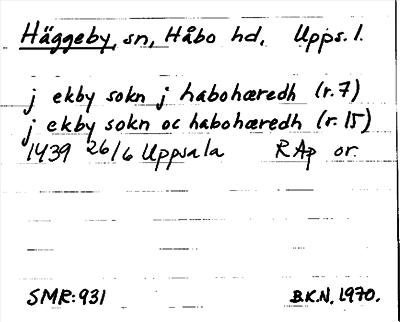 Häggeby, sn, Håbo hd, Upps. l.
j ekby sokn j habohæredh (r. 7)
j ekby sokn oc habohæredh (r. 15)
1439 26/6 Uppsala RAp or.
SMR:931 B.K.N. 1970.